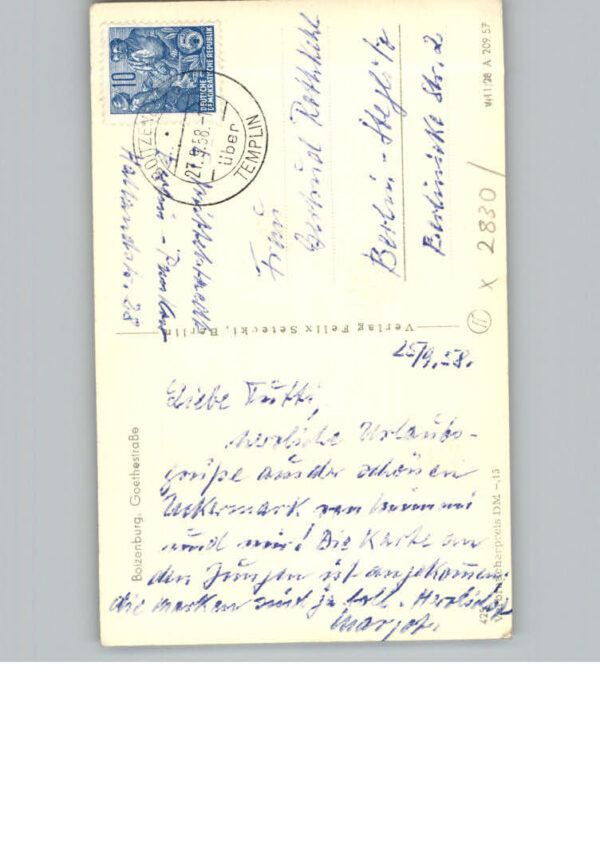 25/9.58.
Liebe Tutti,
herzliche Urlaubs-
grüße aus der schönen
Uckermark von
und mir! Die Karte an
den Jungen ist angekommen,
die Marken sind ja toll. Herzlichst
Margot.
Boizenburg, Goethestraße
Verlag Felix Setecki, Berlin
10
DEUTSCHE
DEMOKRATISCHE REPUBLIK
BOITZEN
27.9.58.-
über
TEMPLIN
Berlin - Pankow
Hallandstr. 28
Frau
Gertrud Rothkehl
Berlin-Steglitz
Berlinicke Str. 2
x 2830/
VM1/28 A 209 57
Verbraucherpreis DM -.15